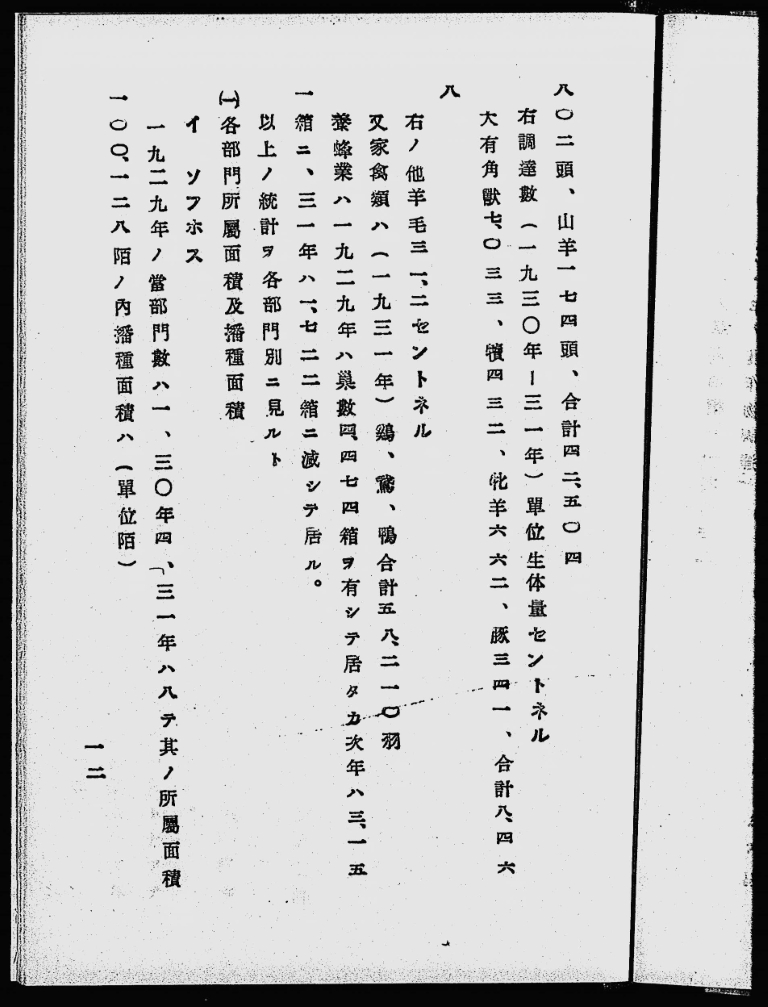 八〇二頭、山羊一七四頭、合計四二、五〇四
右調達數（一九三〇年ー三一年）單位生体量セントネル
大有角獸七、〇三三、犢四三二、牝羊六六二、豚三四一、合計八、四六
八
右ノ他羊毛三一、二セントネル
又家禽類ハ（一九三一年）鷄、鵞、鴨合計五八、二一〇羽
養蜂業ハ一九二九年ハ巢數四、四七四箱ヲ有シテ居タカ次年ハ三、一五
一箱ニ、三一年ハ一、七二二箱ニ減シテ居ル。
以上ノ統計ヲ各部門別ニ見ルト
㈠各部門所屬面積及播種面積
イ　ソフホス
一九二九年ノ當部門數ハ一、三〇年四、三一年ハ八テ其ノ所屬面積
一〇〇、一二八陌ノ內播種面積ハ（單位陌）
一二